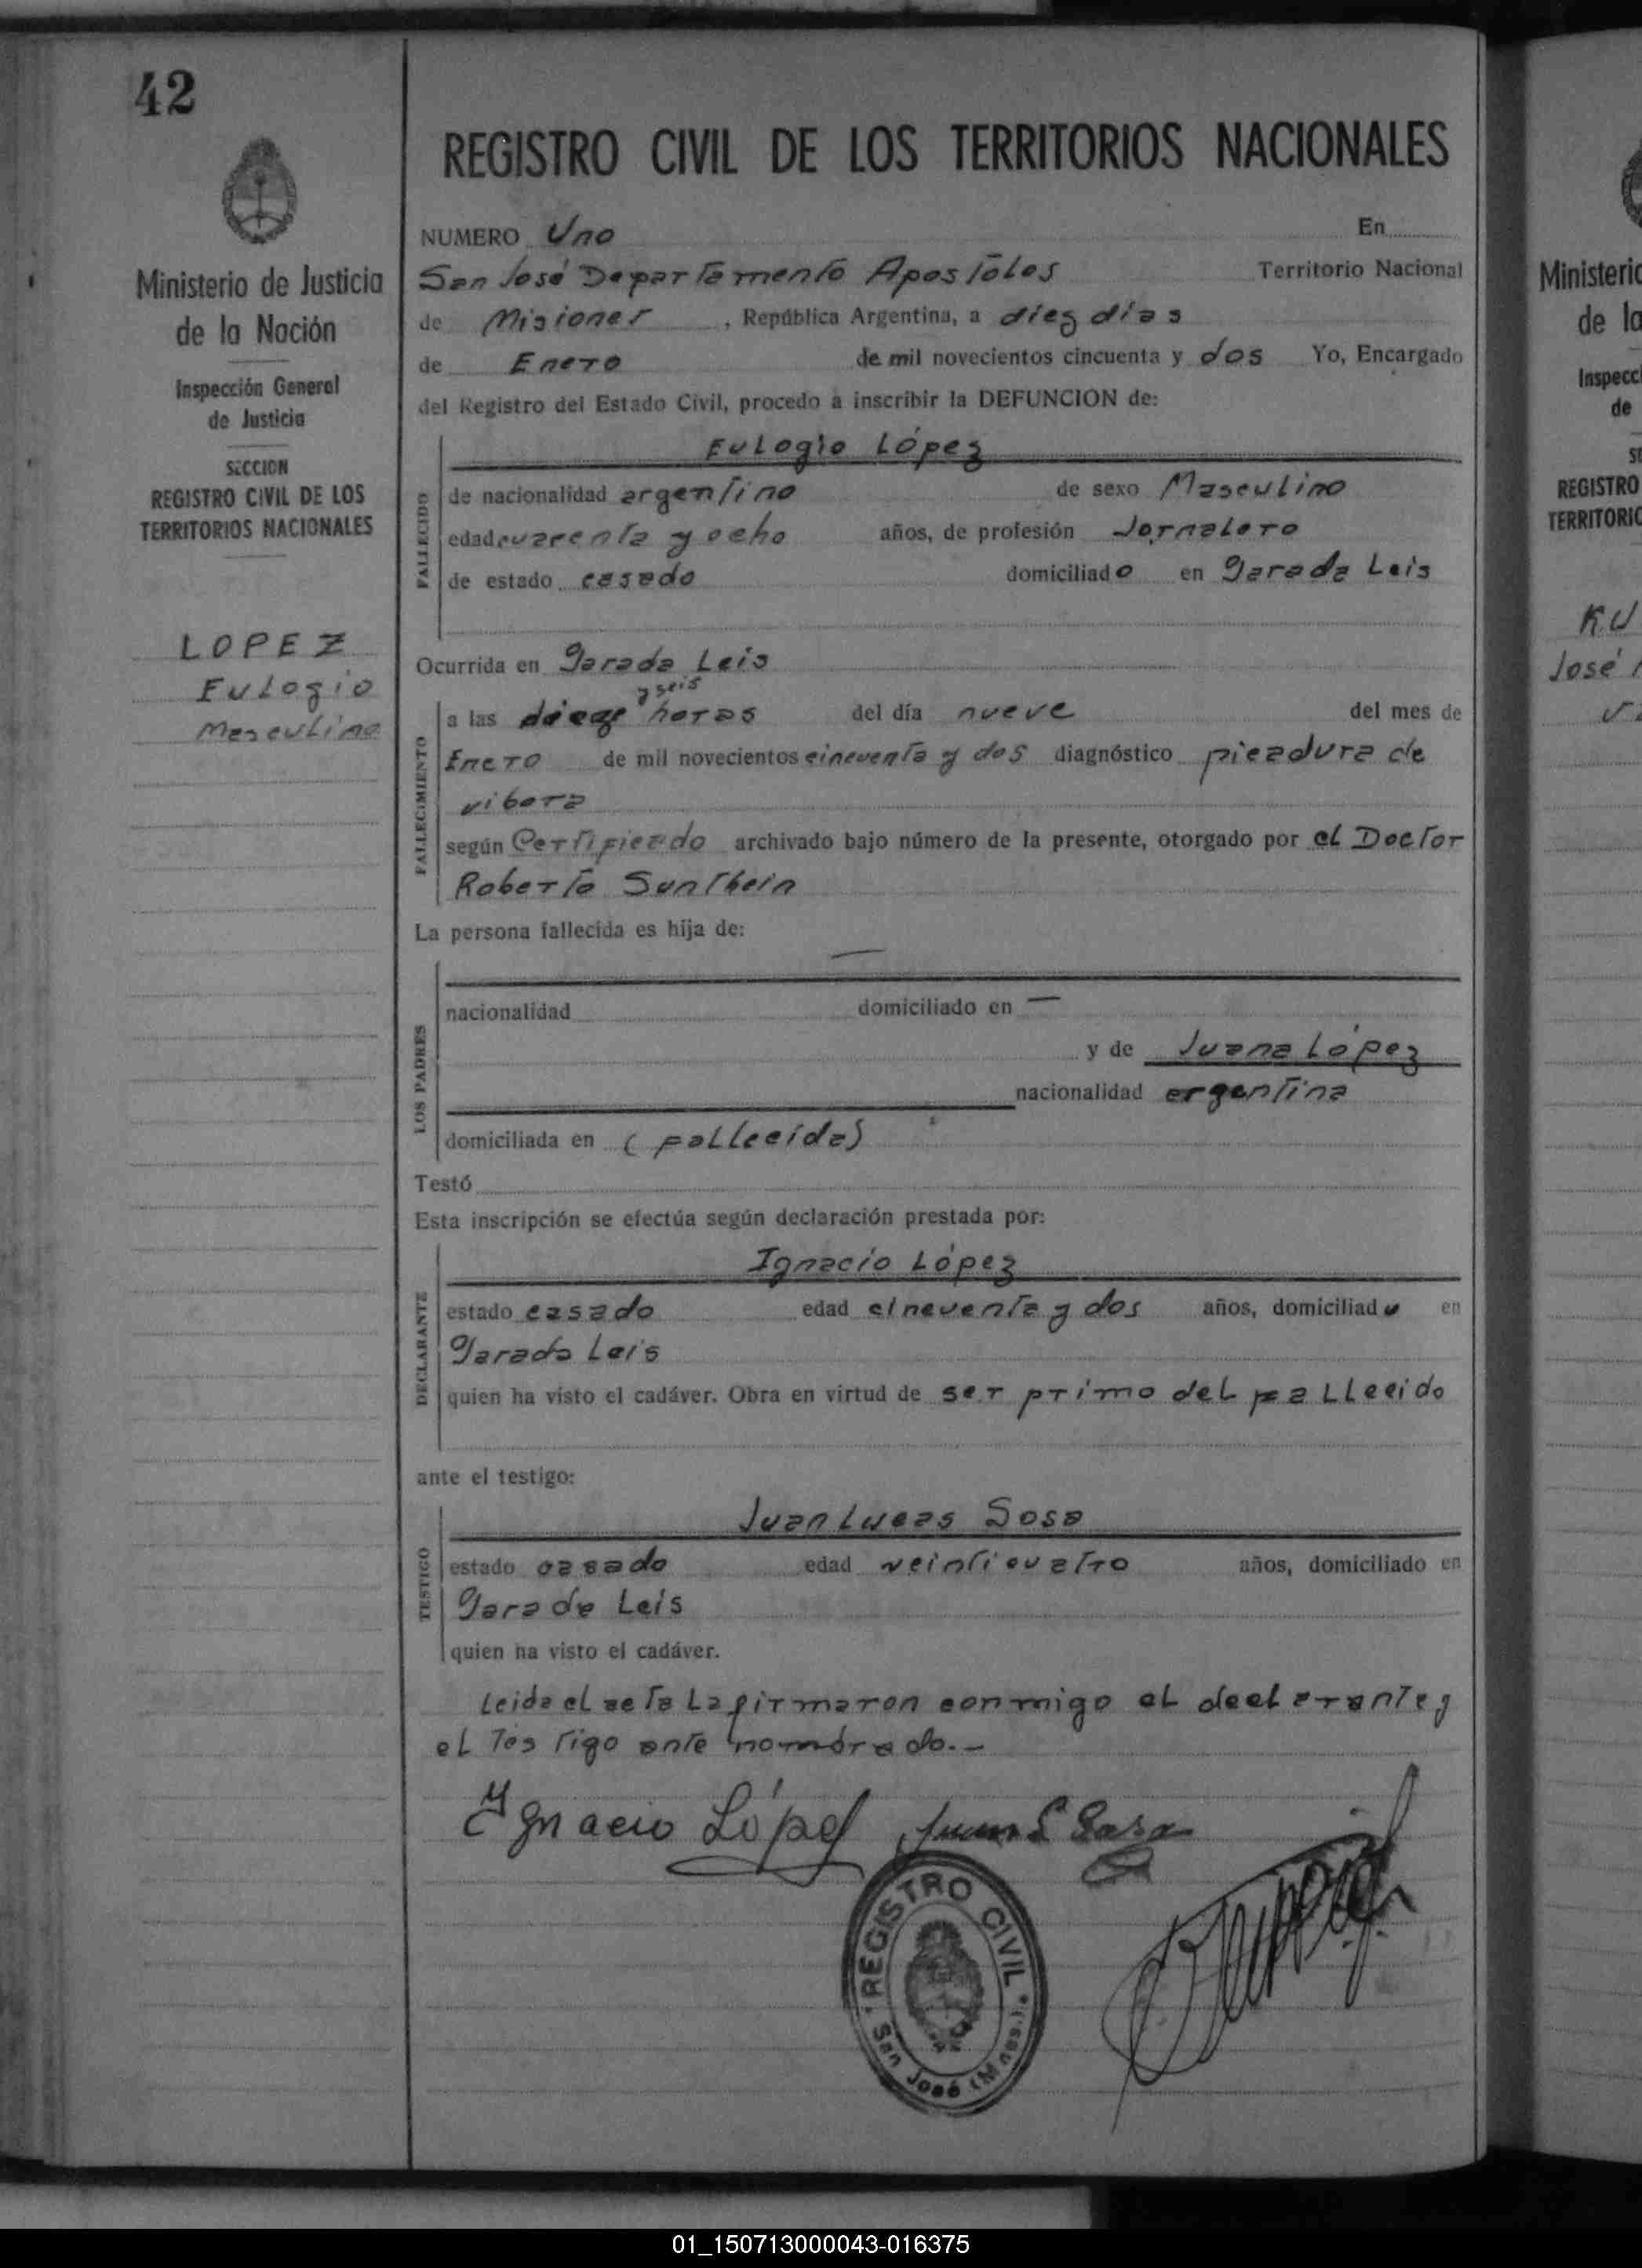 42
REGISTRO CIVIL DE LOS TERRITORIOS NACIONALES
Ministerio de Justicia
de la Nación
Inspección General
de Justicia
SECCION
REGISTRO CIVIL DE LOS
TERRITORIOS NACIONALES
LOPEZ
Eulogio
Masculino
NUMERO Uno En
San José Departamento Apostóles Territorio Nacional
de Misiones, República Argentina, a diez días
de Enero de mil novecientos cincuenta y dos Yo, Encargado
del Registro del Estado Civil, procedo a inscribir la DEFUNCION de:
Eulogio López
FALLECIDO
de nacionalidad argentino de sexo Masculino
edad cuarenta y ocho años, de profesión Jornalero
de estado casado domiciliado en Garada Leis
Ocurrida en Garada Leis
y seis
a las diez horas del día nueve del mes de
FALLECIMIENTO
Enero de mil novecientos cincuenta y dos diagnóstico picadura de
vibora
según Certificado archivado bajo número de la presente, otorgado por el Doctor
Roberto Sunthein
La persona fallecida es hija de:
—
LOS PADRES
nacionalidad domiciliado en —
y de Juana López
nacionalidad argentina
domiciliada en (fallecida)
Testó
Esta inscripción se efectúa según declaración prestada por:
Ignacio López
DECLARANTE
estado casado edad cincuenta y dos años, domiciliado en
Garada Leis
quien ha visto el cadáver. Obra en virtud de ser primo del fallecido
ante el testigo:
Juan Lucas Sosa
TESTIGO
estado casado edad veinticuatro años, domiciliado en
Garada Leis
quien ha visto el cadáver.
Leida el acta la firmaron conmigo el declarante y
el Testigo ante nombrado.—
Ygnacio López Juan L Sosa
REGISTRO CIVIL
San José (Mnes.)
Ministerio
de la
Inspecci
de
REGISTRO
TERRITORIO
KU
José
01_150713000043-016375